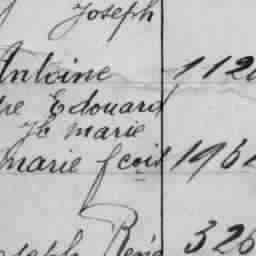 Joseph
Antoine 112
re Edouard
Je marie
marie fcois 196
Joseph René 326